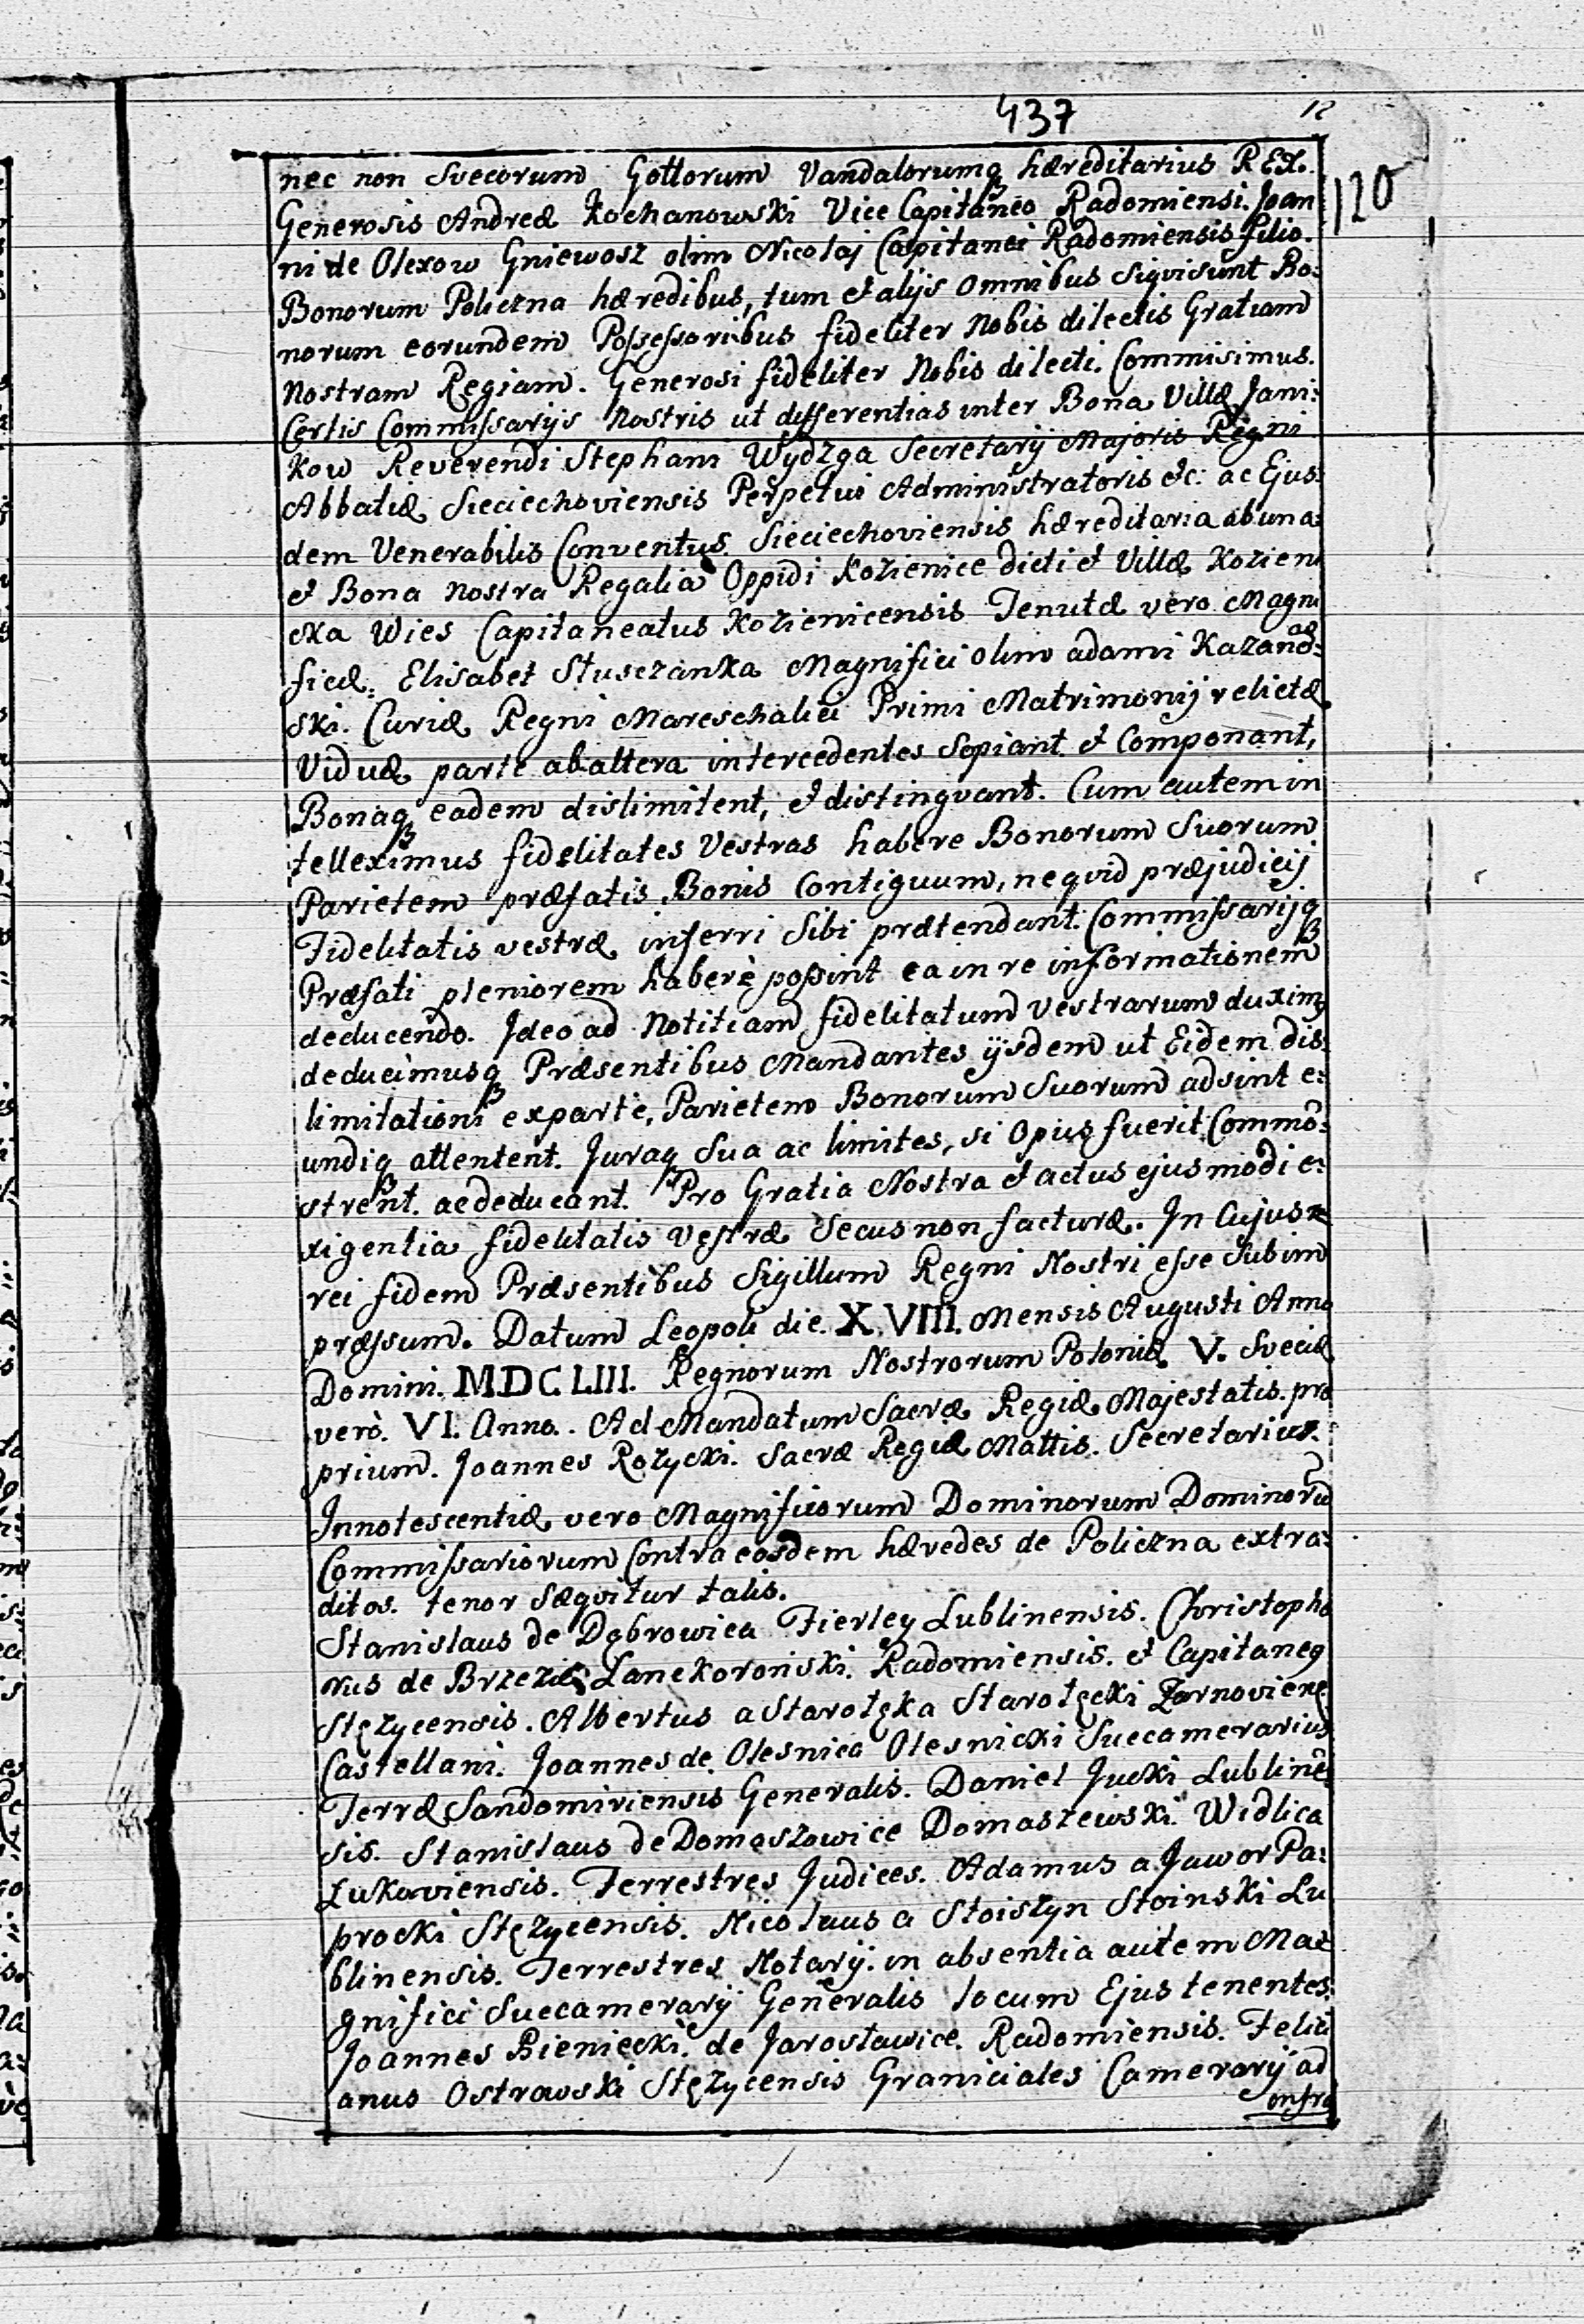 437
12
120
nec non Svecorum Gottorum Vandalorumq hæreditarius REX.
Generosis Andreæ Kochanowski Vice Capitaneo Radomiensi. Joan
ni de Olexow Gniewosz olim Nicolaj Capitanei Radomiensis filio.
Bonorum Policzna hæredibus, tum et alijs omnibus sigvisunt Bo:
norum eorundem Possessoribus fideliter Nobis dilectis Gratiam
Nostram Regiam. Generosi fideliter Nobis dilecti. Commisimus.
Certis Commissarijs Nostris ut differentias inter Bona Villæ Jani:
kow Reverendi Stephani Wydzga Secretarij Majoris Regni
Abbatiæ Sieciechoviensis Perpetui Administratoris etc. ac Ejus:
dem Venerabilis Conventus Sieciechoviensis hæreditaria ab una:
et Bona nostra Regalia Oppidi Kozienice dicti et Villæ Kozien
cka Wies Capitaneatus Kozienicensis Tenutæ vero Magni
ficæ. Elisabet Słuszczanka Magnifici olim adami Kazanow:
ski. Curiæ Regni Mareschalci Primi Matrimonij relictæ
Viduæ parte ab altera intercedentes Sopiant et Componant,
Bonaq eadem dislimitent, et distingvant. Cum autem in
tellexìmus fidelitates Vestras habere Bonorum Suorum
Parietem præfatis Bonis Contiguum, neqvid præjudicij
Fidelitatis vestræ inferri Sibi prætendant. Commissarijq
Præfati pleniorem haberè possint ea in re informationem
deducendo. Jdeo ad Notitiam fidelitatum vestrarum duxim9
deducimusq Præsentibus Mandantes ijsdem ut Eidem dis:
limitationi exparte, Parietem Bonorum Suorum adsint e:
undiq attentent. Juraq Sua ac limites, si Opus fuerit Commõ:
strent. ac deducant. Pro Gratia Nostra et actus ejusmodi e:
xigentia fidelitatis Vestræ Secus non facturæ. In Cujus
rei fidem Præsentibus Sigillum Regni Nostri esse Subim
præssum. Datum Leopoli die. X.VIII. Mensis Augusti Anno
Domini. MDCLIII. Regnorum Nostrorum Poloniæ. V. Sveciæ
verò. VI. Anno. Ad Mandatum Sacræ Regiæ Majestatis. pro
prium. Joannes Rożycki. Sacræ Regiæ Mattis. Secretarius.
Innotescentiæ vero Magnificorum Dominorum Dominorũ
Commissariorum Contra eosdem hæredes de Policzna extra:
ditos. tenor sæqvitur talis.
Stanislaus de Dąbrowica Fierley Lublinensis. Christopho
rus de Brzezie Lanckoroński. Radomiensis. et Capitane9
Stężycensis. Albertus a Starołęka Starołęcki Żarnoviens
Castellani. Joannes de Olesnica Olesnicki Succamerarius
Terræ Sandomiriensis Generalis. Daniel Jucki Lublinẽ
sis. Stanislaus de Domaszowice Domaszewski. Widlica
Łukoviensis. Terrestres Judices. Adamus a Jawor Pa:
procki Stężycensis. Nicolaus a Stoiszyn Stoinski Lu
blinensis. Terrestres Notarij. in absentia autem Ma:
gnifici Succamerarij Generalis locum Ejus tenentes.
Joannes Bieniecki. de Jarosławice. Radomiensis. Felici
anus Ostrowski Stężycensis Graniciales Camerarij ad
infra